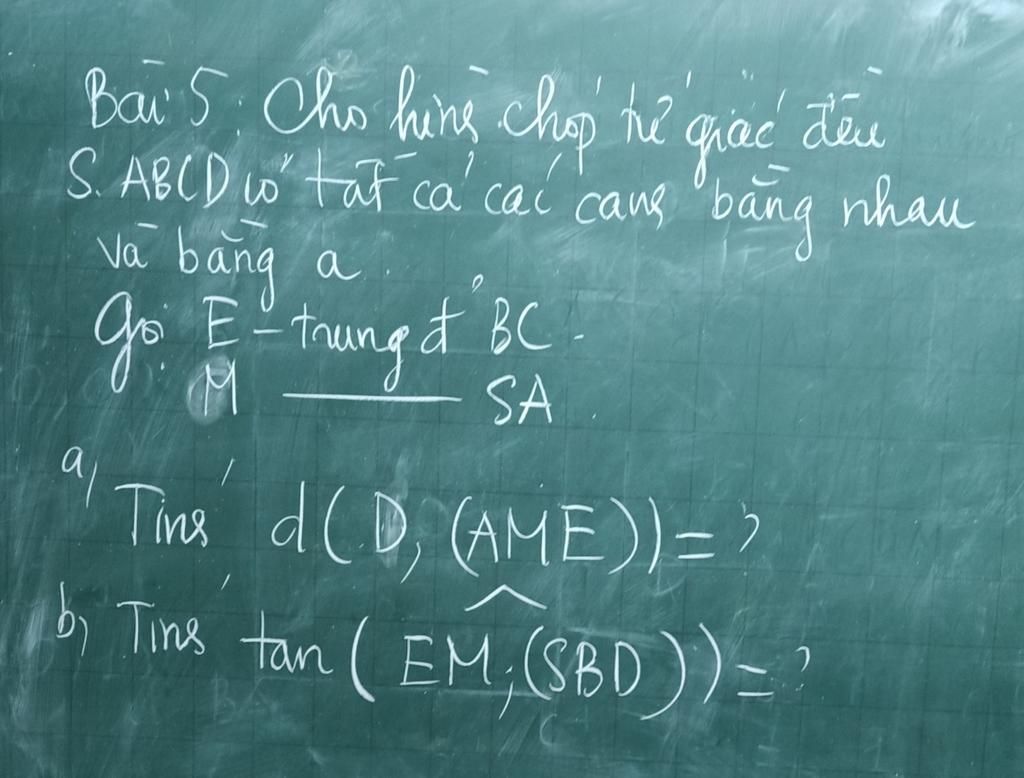 Bài 5. Cho hình chóp tứ giác đều
S.ABCD có tất cả các cạnh bằng nhau
và bằng a.
Gọi E - trung đ' BC.
M ——— SA.
a, Tính d(D, (AME)) = ?
b, Tính tan(EM; (SBD)) = ?